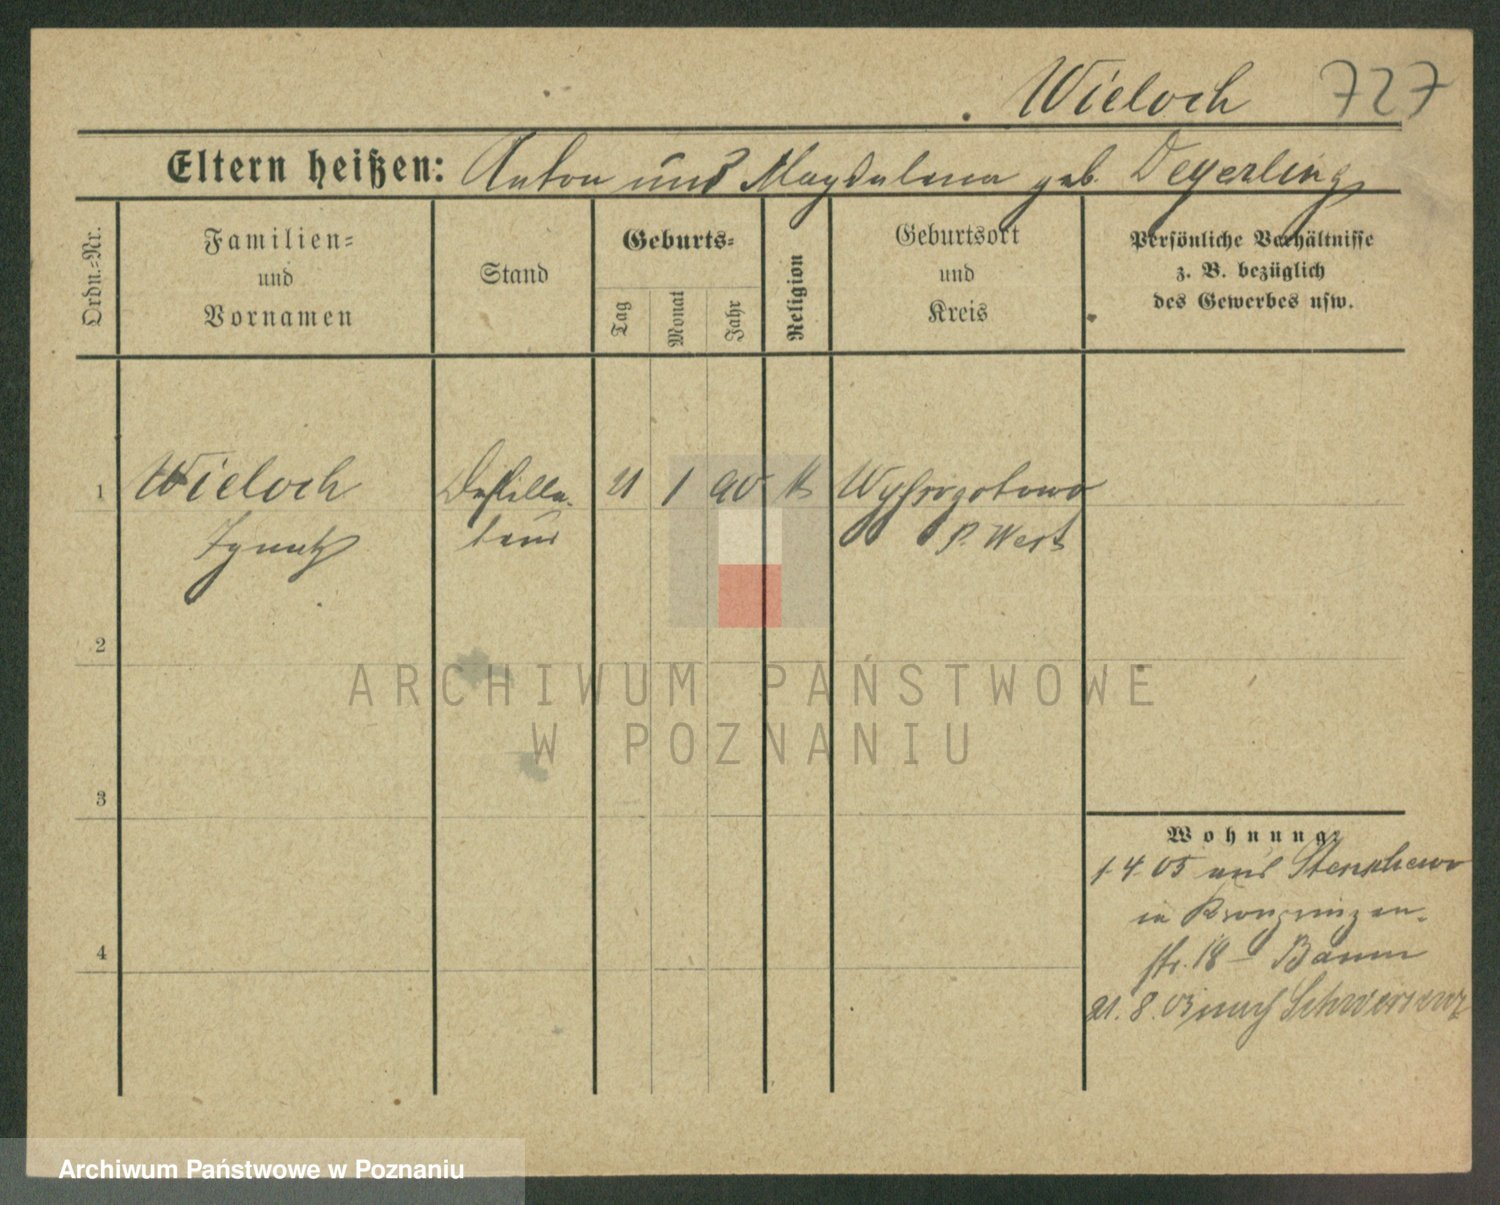 Wieloch 727
Eltern heißen: Anton und Magdalena geb. Deyerling
Ordn.-Nr.
Familien-
und
Vornamen
Stand
Geburts-
Tag
Monat
Jahr
Religion
Geburtsort
und
Kreis
Persönliche Verhältnisse
z. B. bezüglich
des Gewerbes usw.
1 Wieloch Destilla- 21 1 90 k Wyssogotowo
Ignatz teur P. West
2
ARCHIWUM PAŃSTWOWE
W POZNANIU
3
Wohnung:
1 4 05 aus Stenschewo
in Kronprinzen-
str. 18 - Baum
21. 8. 05 nach Schwersenz
4
Archiwum Państwowe w Poznaniu